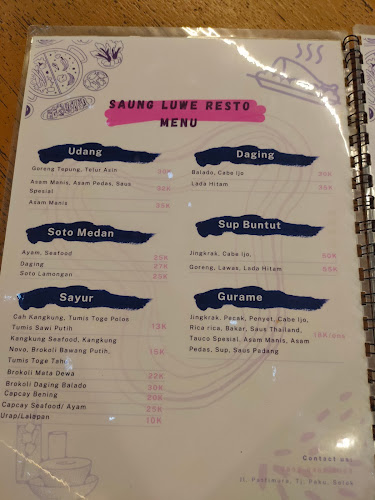 SAUNG LUWE RESTO
MENU
Udang
Goreng Tepung, Telur Asin
Asam Manis, Asam Pedas, Saus
Spesial
Asam Manis
Daging
Balado, Cabe Ijo
Lada Hitam
Soto Medan
Ayam, Seafood 25K
Daging 27K
Soto Lamongan 25K
Sup Buntut
Jingkrak, Cabe Ijo,
Goreng, Lawas, Lada Hitam
Sayur
Cah Kangkung, Tumis Toge Polos
Tumis Sawi Putih 13K
Kangkung Seafood, Kangkung
Novo, Brokoli Bawang Putih, 15K
Tumis Toge Tahu
Brokoli Mata Dewa 22K
Brokoli Daging Balado 30K
Capcay Bening 20K
Capcay Seafood/ Ayam 25K
Urap/Lalapan 10K
Gurame
Jingkrak, Pecak, Penyet, Cabe Ijo,
Rica rica, Bakar, Saus Thailand,
Tauco Spesial, Asam Manis, Asam
Pedas, Sup, Saus Padang
Contact us:
Jl. Pattimura, Tj. Paku, Solok